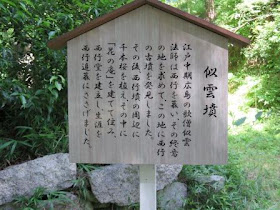 似雲墳
江戸中期広島の歌僧似雲
法師は西行を慕い、その終焉
の地を求めて、この地に西行
の古墳を発見しました。
その後西行墳の周辺に
千本桜を植え、その中に
「花の庵」を建てて住み、
西行堂を建立し生涯を
西行追慕にささげました。